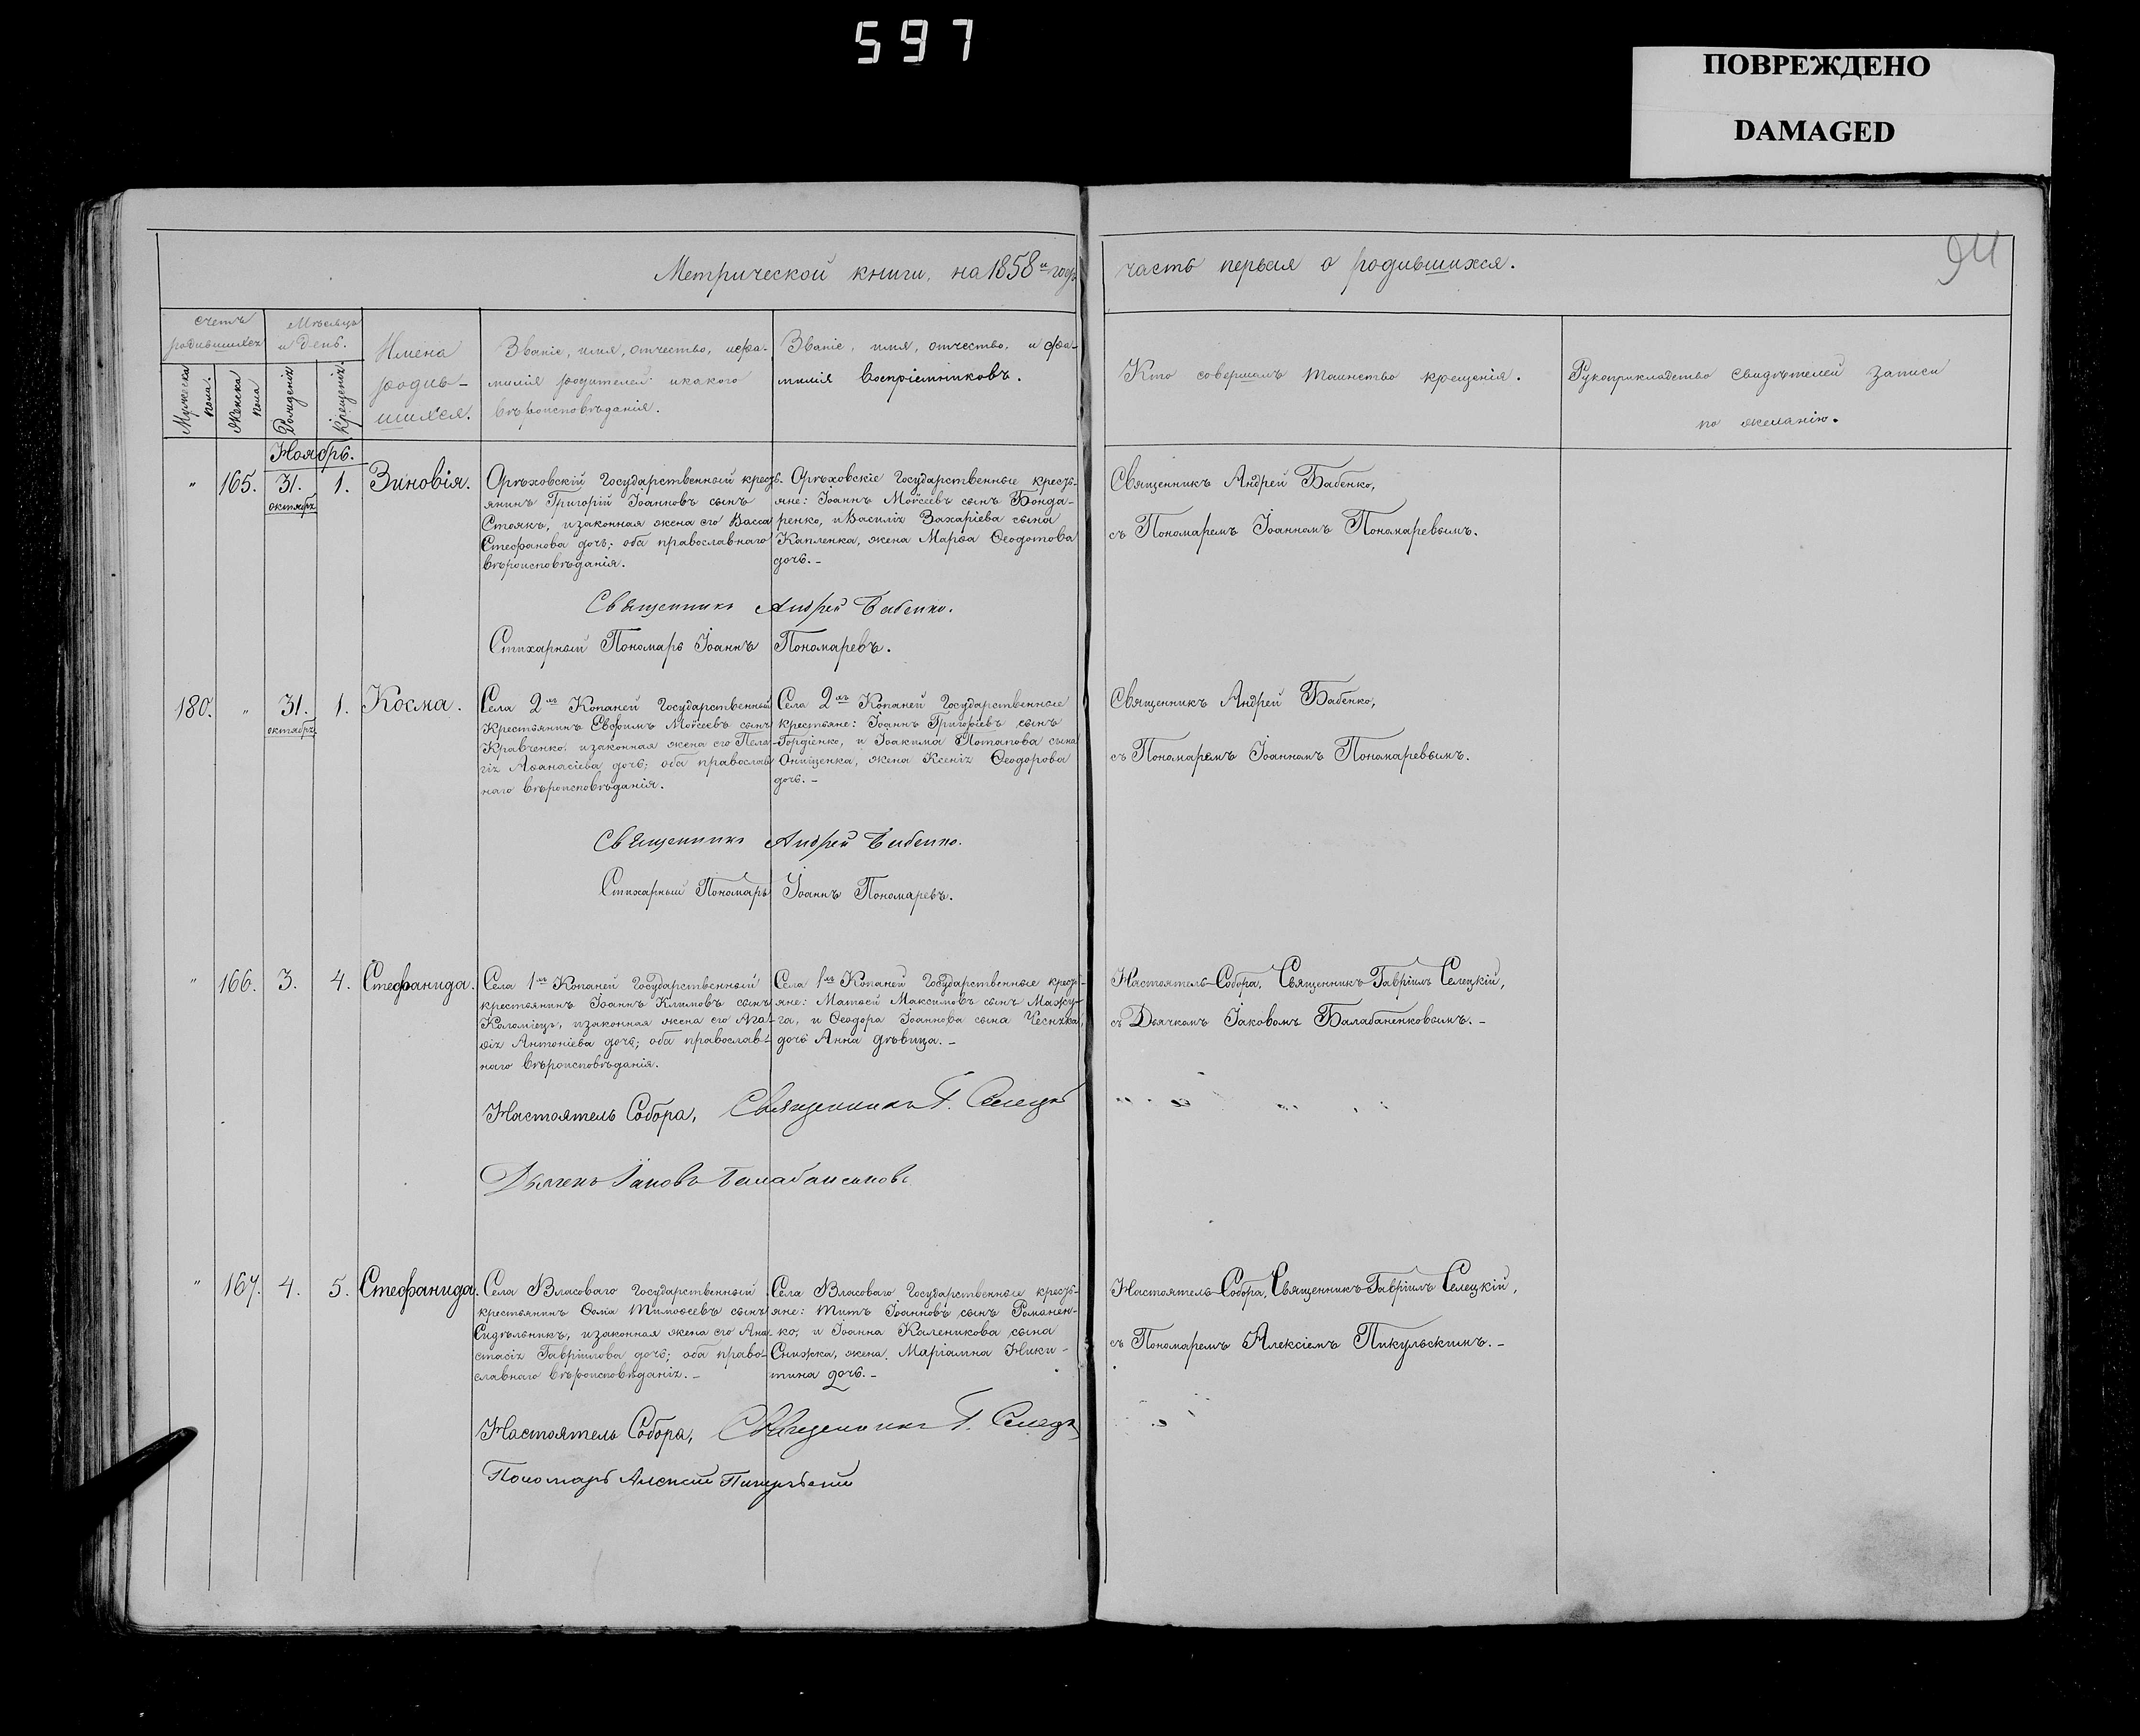 597
ПОВРЕЖДЕНО
DAMAGED
94
Метрической книги, на 1858й годъ часть первая о родившихся.
Счетъ родившихся
Мужеска пола.
Женска пола
Мѣсяцъ и день.
Рожденія
Крещенія
Имена родив-
шихся.
Званіе, имя, отчество, и фа-
милія родителей и какого
вѣроисповѣданія.
Званіе, имя, отчество, и фа-
милія воспріемниковъ.
Кто совершалъ таинство крещенія.
Рукоприкладство свидѣтелей записи
по желанію.
Ноябрь.
" 165. 31. октября 1. Зиновія.
Орѣховскій Государственный кресть-
янинъ Григорій Іоанновъ сынъ
Стоякъ, и законная жена его Васса
Стефанова дочь; оба православнаго
вѣроисповѣданія.
Орѣховскіе Государственные кресть-
яне: Іоаннъ Моѵсеевъ сынъ Бонда-
ренко, и Василія Захаріева сына
Капленка, жена Марѳа Ѳеодотова
дочь. -
Священникъ Андрей Бабенко,
съ Пономаремъ Іоанномъ Пономаревымъ.
Священникъ Андрей Бабенко.
Стихарный Пономарь Іоаннъ Пономаревъ.
180. " 31. октября 1. Косма.
Села 2хъ Копаней Государственный
крестьянинъ Евфимъ Моѵсеевъ сынъ
Кравченко. и законная жена его Пела-
гія Аѳанасіева дочь; оба православ-
наго вѣроисповѣданія.
Села 2хъ Копаней Государственные
крестьяне: Іоаннъ Григоріевъ сынъ
Гордіенко, и Іоакима Потапова сына
Онищенка, жена Ксенія Ѳеодорова
дочь. -
Священникъ Андрей Бабенко,
съ Пономаремъ Іоанномъ Пономаревымъ.
Священникъ Андрей Бабенко.
Стихарный Пономарь Іоаннъ Пономаревъ.
" 166. 3. 4. Стефанида.
Села 1хъ Копаней Государственный
крестьянинъ Іоаннъ Климовъ сынъ
Коломіецъ, и законная жена его Ага-
ѳія Антоніева дочь; оба православ-
наго вѣроисповѣданія.
Села 1хъ Копаней Государственные кресть-
яне: Матѳей Максимовъ сынъ Мажу-
га, и Ѳеодора Іоаннова сына Чеснока,
дочь Анна дѣвица. -
Настоятель Собора, Священникъ Гавріилъ Селецкій,
съ Дьячкомъ Іаковомъ Балабаненковымъ. -
Настоятель Собора, Священникъ Г. Селецкій
Дьячекъ Іаковъ Балабаненковъ
" 167. 4. 5. Стефанида.
Села Власоваго Государственный
крестьянинъ Ѳома Тимоѳеевъ сынъ
Сидѣльникъ, и законная жена его Ана-
стасія Гавріилова дочь; оба право-
славнаго вѣроисповѣданія. -
Села Власоваго Государственные кресть-
яне: Титъ Іоанновъ сынъ Романен-
ко, и Іоанна Каленикова сына
Снижка, жена Маріамна Ники-
тина дочь. -
Настоятель Собора, Священникъ Гавріилъ Селецкій,
съ Пономаремъ Алексіемъ Пикульскимъ. -
Настоятель Собора, Священникъ Г. Селецкій
Пономарь Алексій Пикульскій